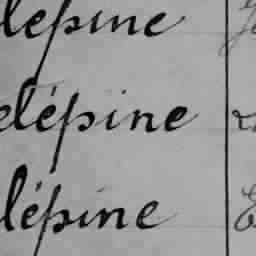 lépine
elépine
lépine